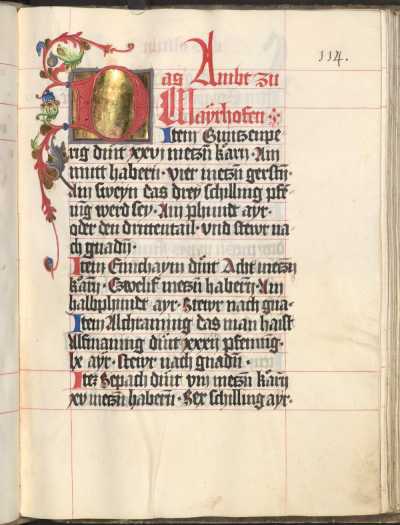 114.
Das Ambt zu
Mayrhofen
Item Guntzenpe
rig dint xxvi metzn̄ karn̄ · Ain
mutt habern̄ · Vier metzn̄ gerstn̄ ·
Ain sweyn das drey schilling pfe
nig werd sey · Ain phundt ayr ·
oder den drittentail · Und stewr na
ch gnadn̄ ·
Item Emchaym dint Acht metzn̄
karn̄ · Czwelif metzn̄ habern̄ · Ain
halbphundt ayr · Stewr nach gna ·
Item Alchraming das man haist
Alfmaning dint xxxii pfenning ·
lx ayr · stewr nach gnadn̄ ·
Itez Sepach dint viii metzn̄ karn̄
xv metzn̄ habern̄ · Sex schilling ayr ·